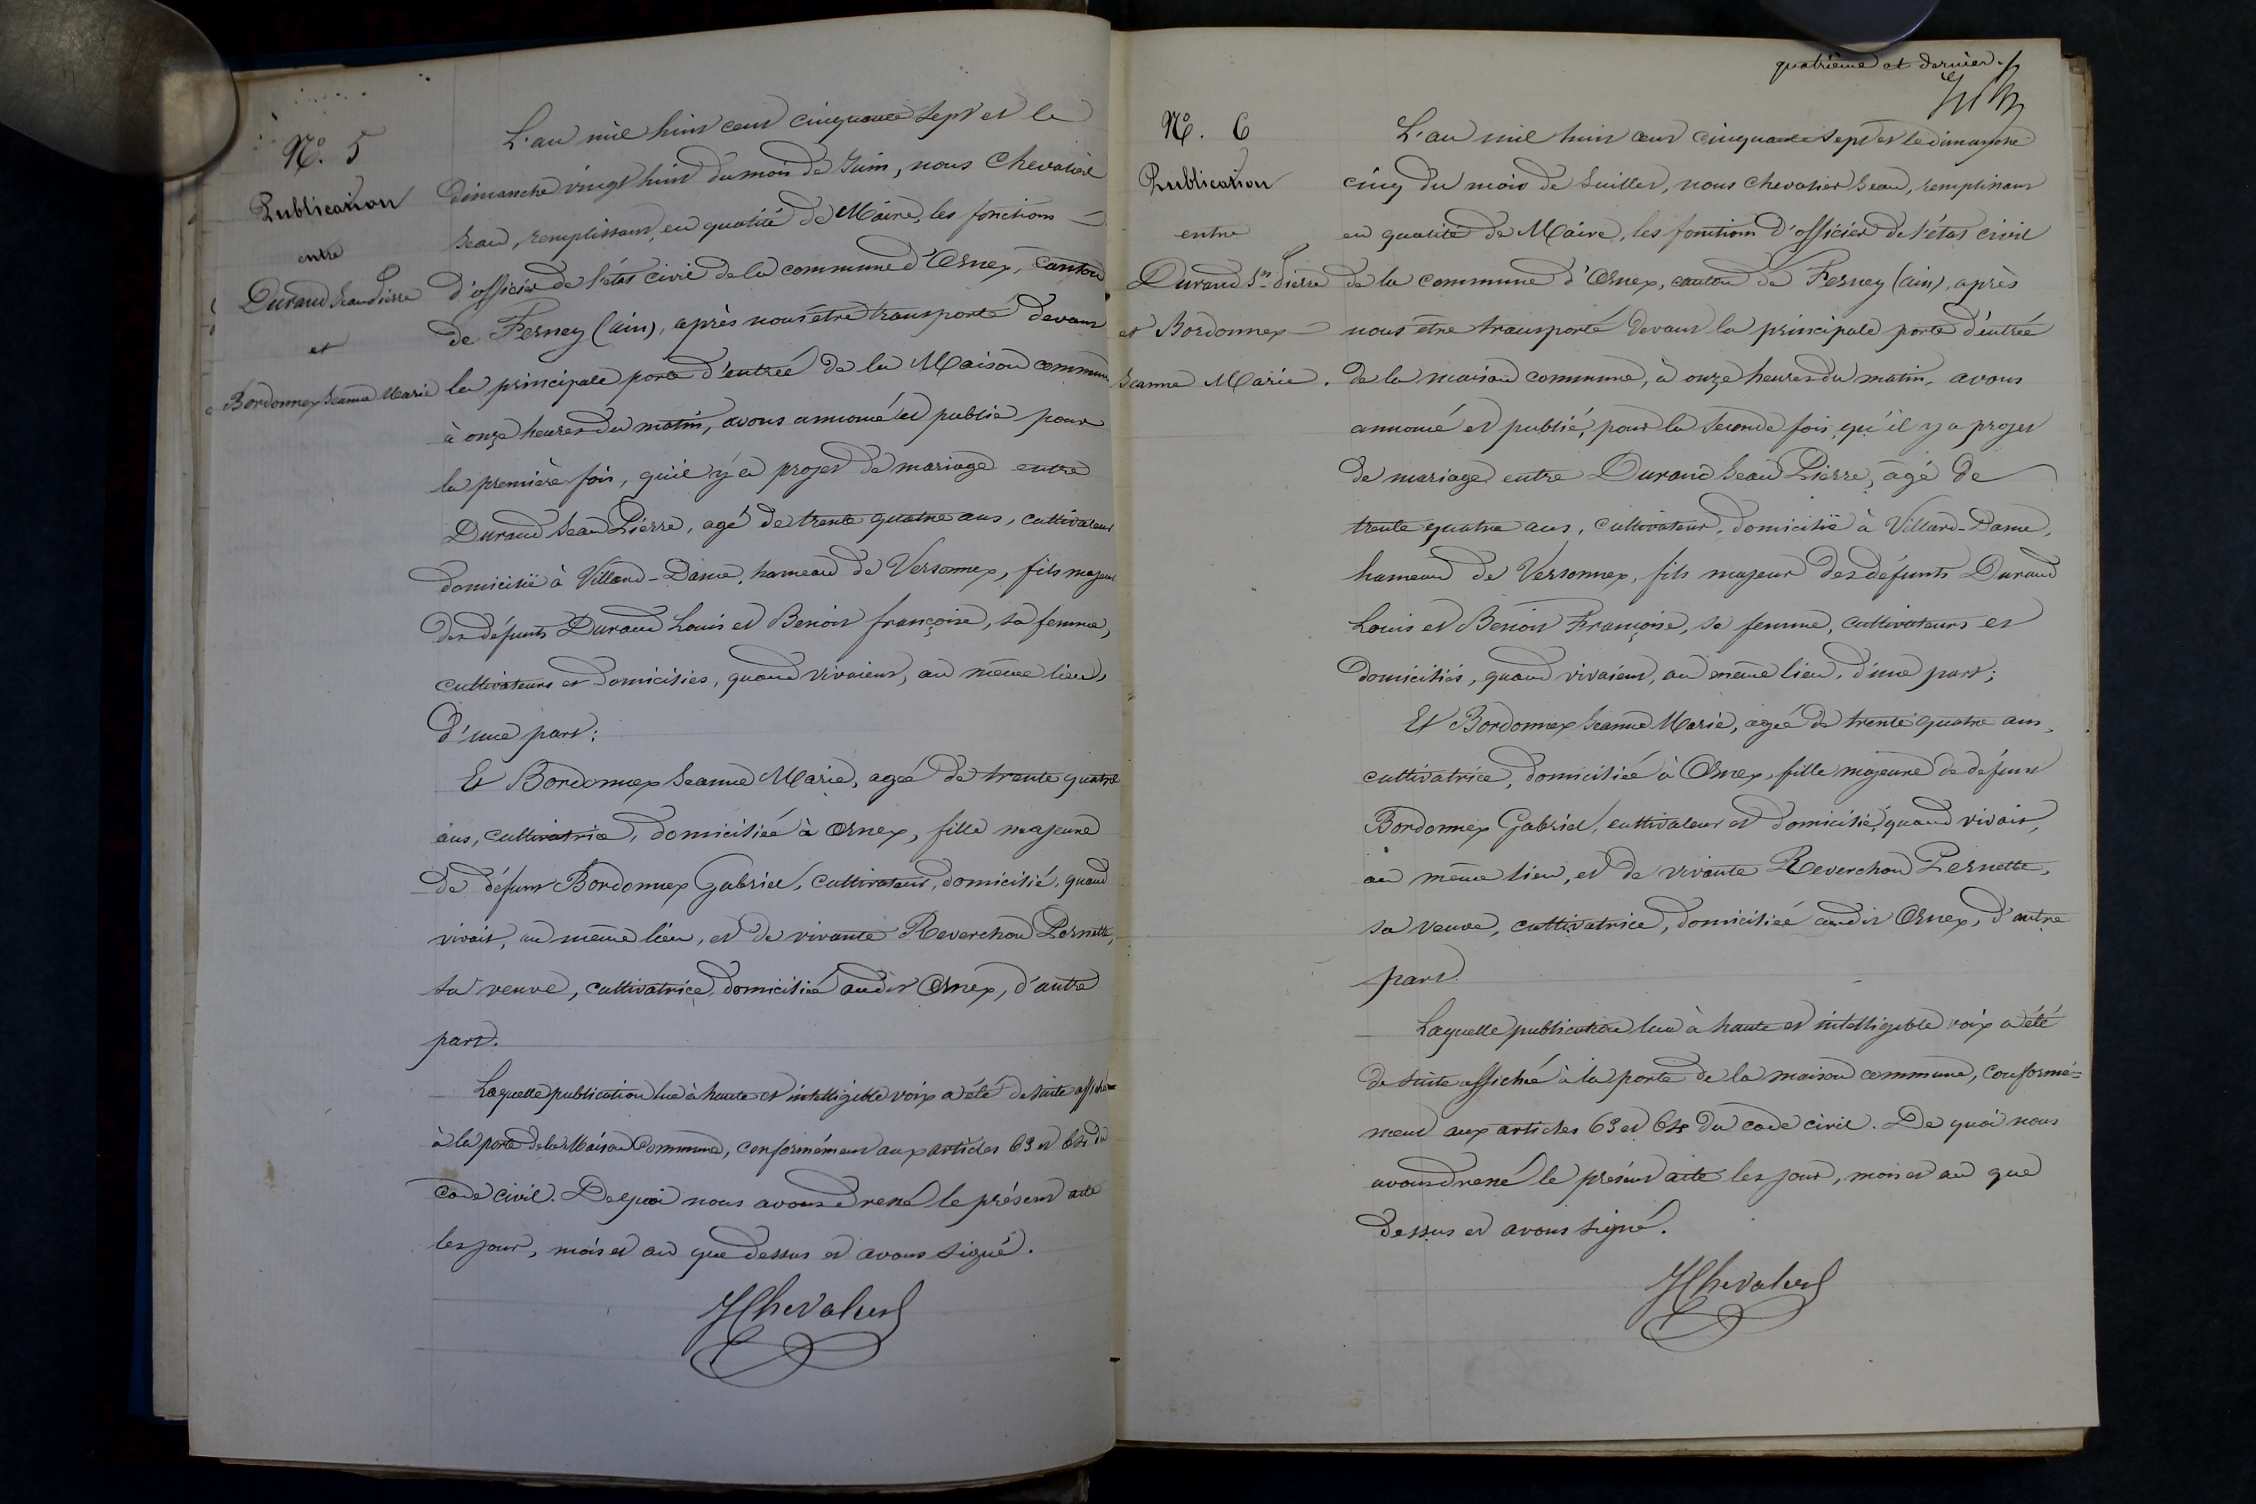 N°. 5
Publication
entre
Durand Jean Pierre
et
Bordonnex Jeanne Marie
L'an mil huit cent cinquante sept et le
dimanche vingt huit du mois de Juin, nous Chevalier
Jean, remplissant, en qualité de Maire, les fonctions
d'officier de l'état civil de la commune d'Ornex, canton
de Ferney (ain), après nous être transporté devant
la principale porte d'entrée de la Maison commune
à onze heures du matin, avons annoncé et publié pour
la première fois, qu'il y a projet de mariage entre
Durand Jean Pierre, agé de trente quatre ans, cultivateur
domicilié à Villard-Dame, hameau de Versonnex, fils majeur
des défunts Durand Louis et Benoit françoise, sa femme,
cultivateurs et domiciliés, quand vivaient, au même lieu,
d'une part;
Et Bordonnex Jeanne Marie, agée de trente quatre
ans, cultivatrice, domiciliée à Ornex, fille majeure
de défunt Bordonnex Gabriel, cultivateur, domicilié, quand
vivait, au même lieu, et de vivante Reverchon Pernette,
sa veuve, cultivatrice, domiciliée audit Ornex, d'autre
part.
Laquelle publication lue à haute et intelligible voix a été de suite affichée
à la porte de la Maison Commune, conformément aux articles 63 et 64 du
code civil. De quoi nous avons dressé le présent acte
les jour, mois et an que dessus et avons signé.
JChevalier
quatrième et dernier
N°. 6
Publication
entre
Durand Jn Pierre
et Bordonnex
Jeanne Marie.
L'an mil huit cent cinquante sept et le dimanche
cinq du mois de Juillet, nous Chevalier Jean, remplissant
en qualité de Maire, les fonctions d'officier de l'état civil
de la commune d'Ornex, canton de Ferney (ain), après
nous être transporté devant la principale porte d'entrée
de la maison commune, à onze heures du matin, avons
annoncé et publié, pour la seconde fois, qu'il y a projet
de mariage entre Durand Jean Pierre, agé de
trente quatre ans, cultivateur, domicilié à Villard-Dame,
hameau de Versonnex, fils majeur des défunts Durand
Louis et Benoit Françoise, sa femme, cultivateurs et
domiciliés, quand vivaient, au même lieu, d'une part;
Et Bordonnex Jeanne Marie, agée de trente quatre ans,
cultivatrice, domiciliée à Ornex, fille majeure de défunt
Bordonnex Gabriel, cultivateur et domicilié, quand vivait,
au même lieu, et de vivante Reverchon Pernette,
sa veuve, cultivatrice, domiciliée audit Ornex, d'autre
part.
Laquelle publication lue à haute et intelligible voix a été
de suite affichée à la porte de la maison commune, conformé-
ment aux articles 63 et 64 du code civil. De quoi nous
avons dressé le présent acte les jour, mois et an que
dessus et avons signé.
JChevalier